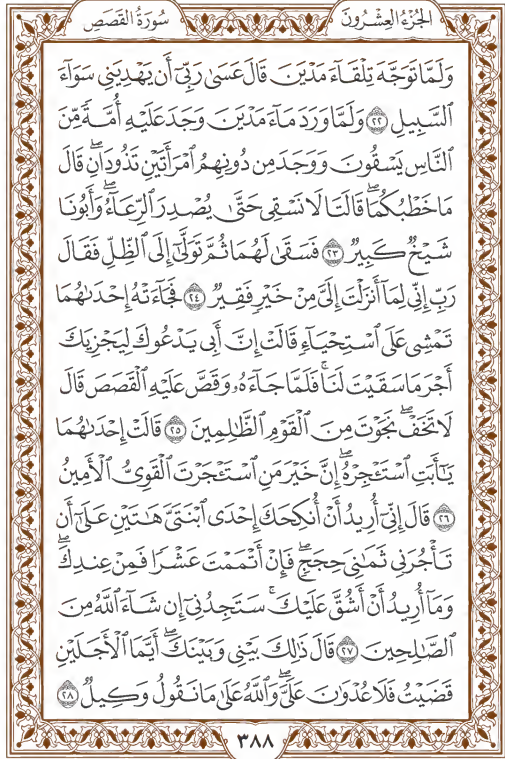 الجزء العشرون
سورة القصص
وَلَمَّا تَوَجَّهَ تِلْقَآءَ مَدْيَنَ قَالَ عَسَىٰ رَبِّىٓ أَن يَهْدِيَنِى سَوَآءَ
ٱلسَّبِيلِ ٢٢ وَلَمَّا وَرَدَ مَآءَ مَدْيَنَ وَجَدَ عَلَيْهِ أُمَّةً مِّنَ
ٱلنَّاسِ يَسْقُونَ وَوَجَدَ مِن دُونِهِمُ ٱمْرَأَتَيْنِ تَذُودَانِۖ قَالَ
مَا خَطْبُكُمَاۖ قَالَتَا لَا نَسْقِى حَتَّىٰ يُصْدِرَ ٱلرِّعَآءُۖ وَأَبُونَا
شَيْخٌ كَبِيرٌ ٢٣ فَسَقَىٰ لَهُمَا ثُمَّ تَوَلَّىٰٓ إِلَى ٱلظِّلِّ فَقَالَ
رَبِّ إِنِّى لِمَآ أَنزَلْتَ إِلَىَّ مِنْ خَيْرٍ فَقِيرٌ ٢٤ فَجَآءَتْهُ إِحْدَىٰهُمَا
تَمْشِى عَلَى ٱسْتِحْيَآءٍ قَالَتْ إِنَّ أَبِى يَدْعُوكَ لِيَجْزِيَكَ
أَجْرَ مَا سَقَيْتَ لَنَاۚ فَلَمَّا جَآءَهُۥ وَقَصَّ عَلَيْهِ ٱلْقَصَصَ قَالَ
لَا تَخَفْۖ نَجَوْتَ مِنَ ٱلْقَوْمِ ٱلظَّٰلِمِينَ ٢٥ قَالَتْ إِحْدَىٰهُمَا
يَٰٓأَبَتِ ٱسْتَـْٔجِرْهُۖ إِنَّ خَيْرَ مَنِ ٱسْتَـْٔجَرْتَ ٱلْقَوِىُّ ٱلْأَمِينُ
٢٦ قَالَ إِنِّىٓ أُرِيدُ أَنْ أُنكِحَكَ إِحْدَى ٱبْنَتَىَّ هَٰتَيْنِ عَلَىٰٓ أَن
تَأْجُرَنِى ثَمَٰنِىَ حِجَجٍۖ فَإِنْ أَتْمَمْتَ عَشْرًا فَمِنْ عِندِكَۖ
وَمَآ أُرِيدُ أَنْ أَشُقَّ عَلَيْكَۚ سَتَجِدُنِىٓ إِن شَآءَ ٱللَّهُ مِنَ
ٱلصَّٰلِحِينَ ٢٧ قَالَ ذَٰلِكَ بَيْنِى وَبَيْنَكَۖ أَيَّمَا ٱلْأَجَلَيْنِ
قَضَيْتُ فَلَا عُدْوَٰنَ عَلَىَّۖ وَٱللَّهُ عَلَىٰ مَا نَقُولُ وَكِيلٌ ٢٨
٣٨٨